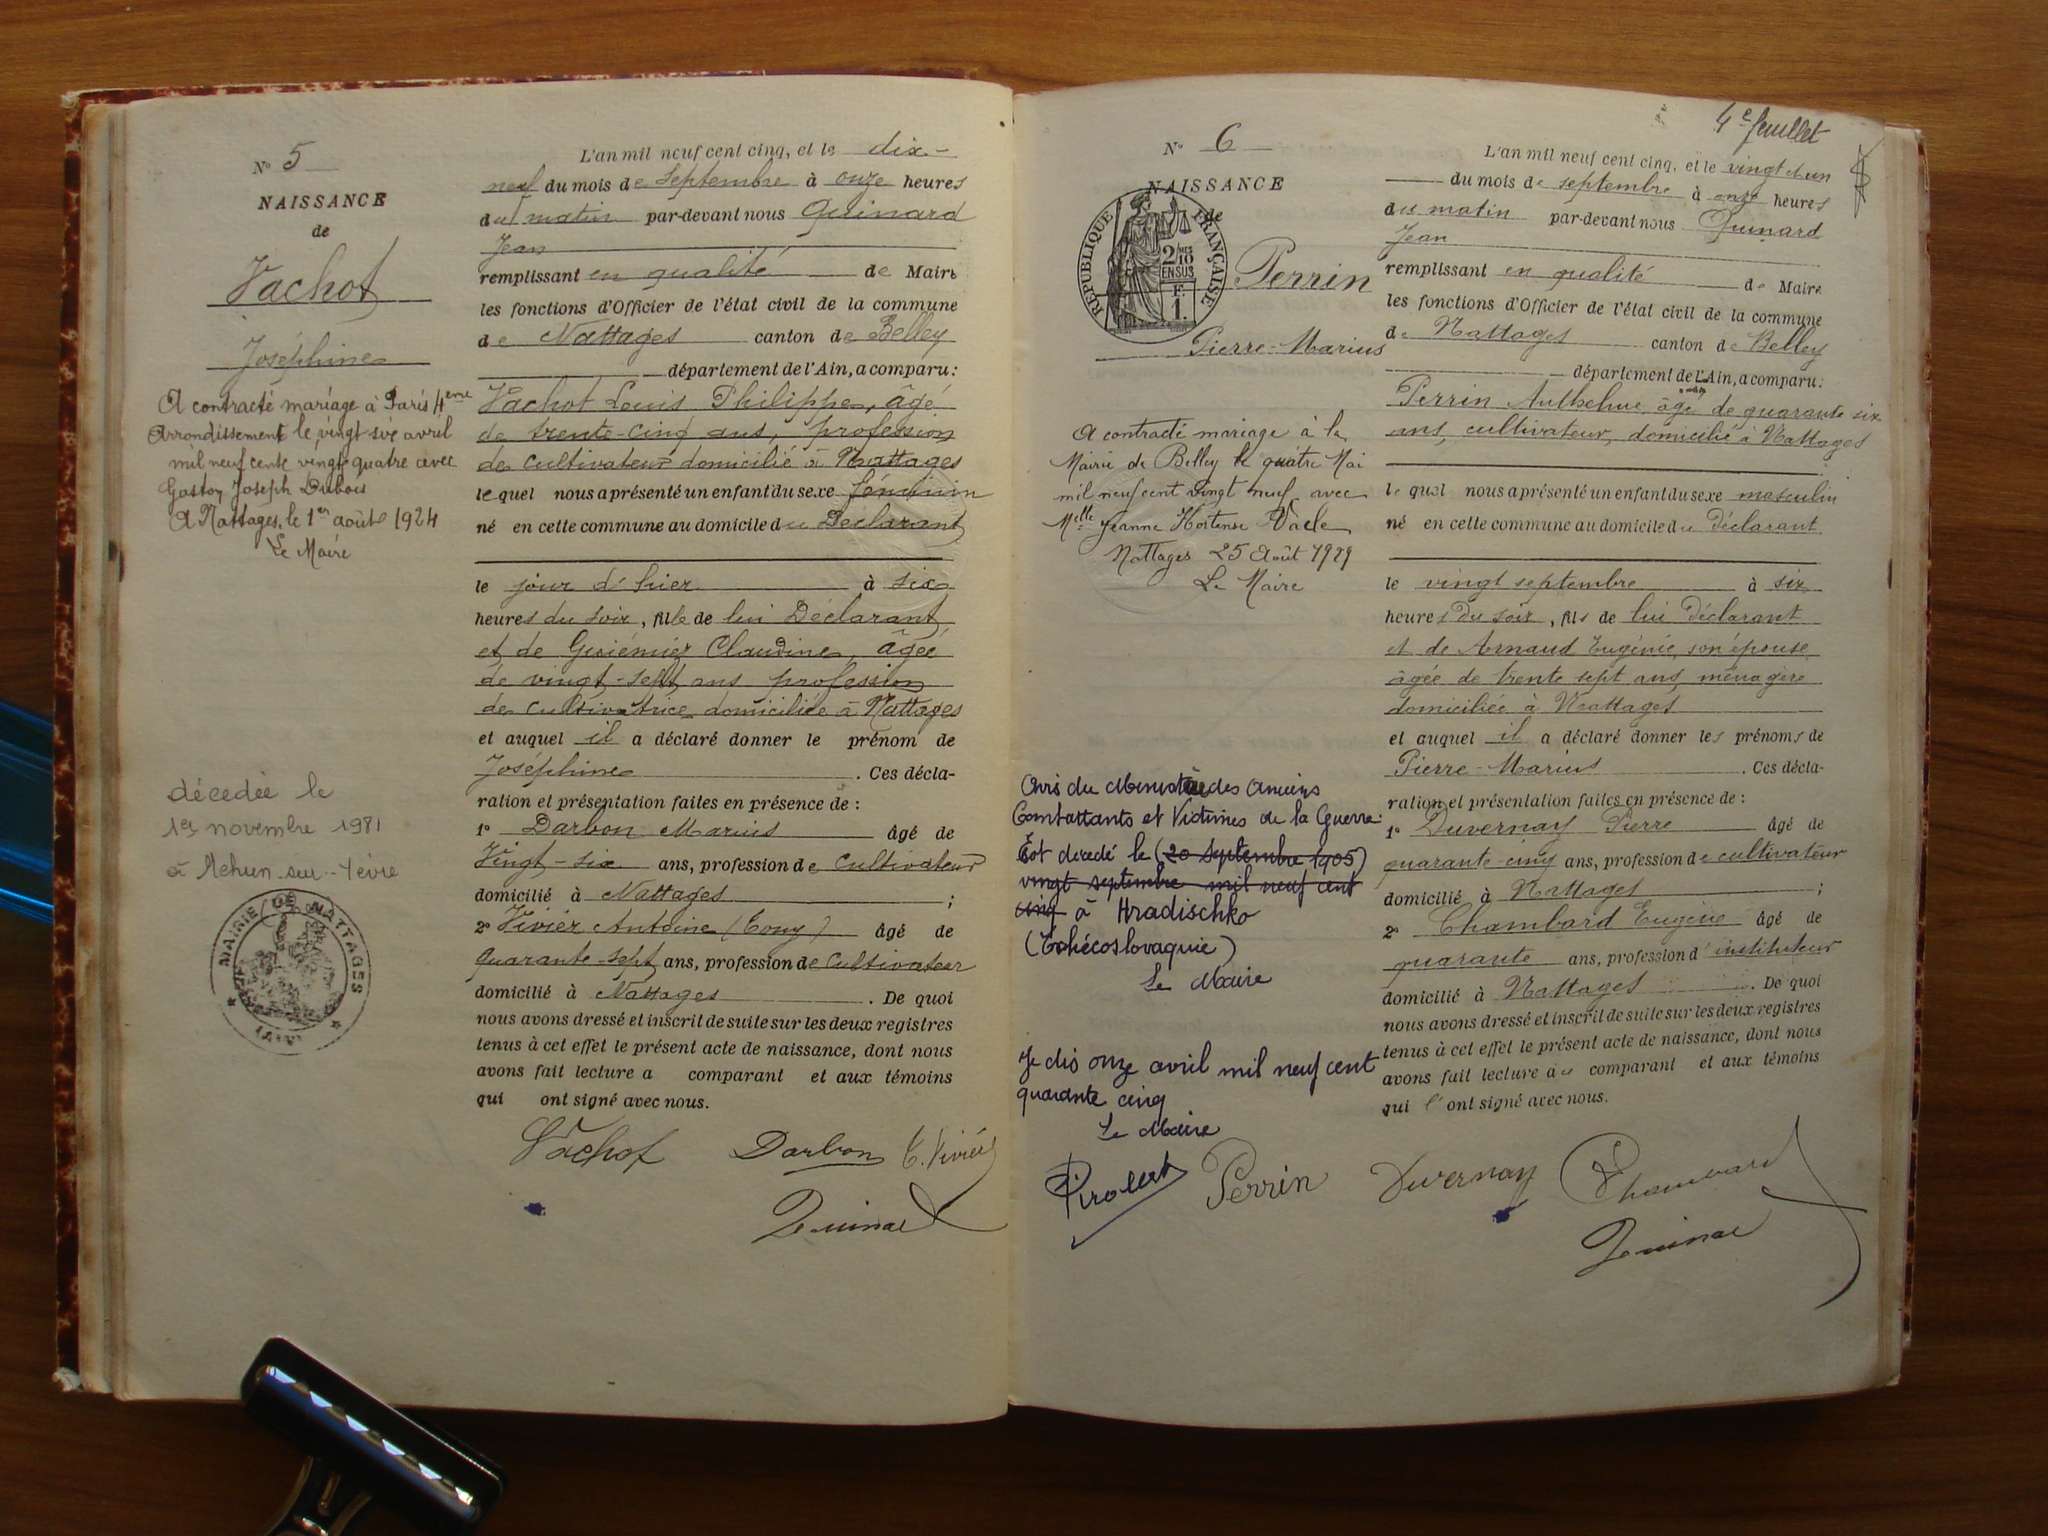 N° 5
NAISSANCE
de
Vachot
Joséphine
A contracté mariage à Paris 4eme
Arrondissement le vingt six avril
mil neuf cent vingt quatre avec
Gaston Joseph Dubois
A Nattages, le 1er août 1924
Le Maire
décédée le
1er novembre 1981
à Mehun-sur-Yèvre
MAIRIE DE NATTAGES
AIN
L'an mil neuf cent cinq, et le dix-
neuf du mois de Septembre à onze heures
du matin par-devant nous Guinard
Jean
remplissant en qualité de Maire
les fonctions d'Officier de l'état civil de la commune
de Nattages canton de Belley
département de l'Ain, a comparu:
Vachot Louis Philippe, âgé
de trente-cinq ans, profession
de cultivateur domicilié à Nattages
lequel nous a présenté un enfant du sexe féminin
né en cette commune au domicile du Déclarant
le jour d'hier à six
heures du soir, fille de lui Déclarant
et de Claudine, âgée
de vingt-sept ans profession
de cultivatrice domiciliée à Nattages
et auquel il a déclaré donner le prénom de
Joséphine. Ces décla-
ration et présentation faites en présence de:
1° Darbon Marius âgé de
Vingt-six ans, profession de Cultivateur
domicilié à Nattages;
2° Vivier Antoine (Tony) âgé de
quarante-sept ans, profession de Cultivateur
domicilié à Nattages. De quoi
nous avons dressé et inscrit de suite sur les deux registres
tenus à cet effet le présent acte de naissance, dont nous
avons fait lecture a comparant et aux témoins
qui ont signé avec nous.
Vachot Darbon T. Vivier
Guinard
4e feuillet
N° 6
NAISSANCE
de
RÉPUBLIQUE FRANÇAISE
2/10
EN SUS
F.
1.
Perrin
Pierre-Marius
A contracté mariage à la
Mairie de Belley le quatre Mai
mil neuf cent vingt neuf avec
Melle Jeanne Hortense
Nattages 25 Août 1929
Le Maire
Avis du Ministère des Anciens
Combattants et Victimes de la Guerre.
Est décédé le (20 septembre 1905)
vingt septembre mil neuf cent
cinq à Hradischko
(Tchécoslovaquie)
Le Maire
Je dis onze avril mil neuf cent
quarante cinq
Le Maire
L'an mil neuf cent cinq, et le vingt et un
du mois de septembre à onze heures
du matin par-devant nous Guinard
Jean
remplissant en qualité de Maire
les fonctions d'Officier de l'état civil de la commune
de Nattages canton de Belley
département de l'Ain, a comparu:
Perrin Anthelme âgé de quarante six
ans, cultivateur, domicilié à Nattages
lequel nous a présenté un enfant du sexe masculin
né en cette commune au domicile du déclarant
le vingt septembre à six
heures du soir, fils de lui déclarant
et de Arnaud Eugénie, son épouse
âgée de trente sept ans, ménagère
domiciliée à Nattages
et auquel il a déclaré donner les prénoms de
Pierre-Marius. Ces décla-
ration et présentation faites en présence de:
1° Duvernay Pierre âgé de
quarante-cinq ans, profession de cultivateur
domicilié à Nattages;
2° Chambard Eugène âgé de
quarante ans, profession d'instituteur
domicilié à Nattages. De quoi
nous avons dressé et inscrit de suite sur les deux registres
tenus à cet effet le présent acte de naissance, dont nous
avons fait lecture au comparant et aux témoins
qui l'ont signé avec nous.
Perrin Duvernay Chambard
Guinard